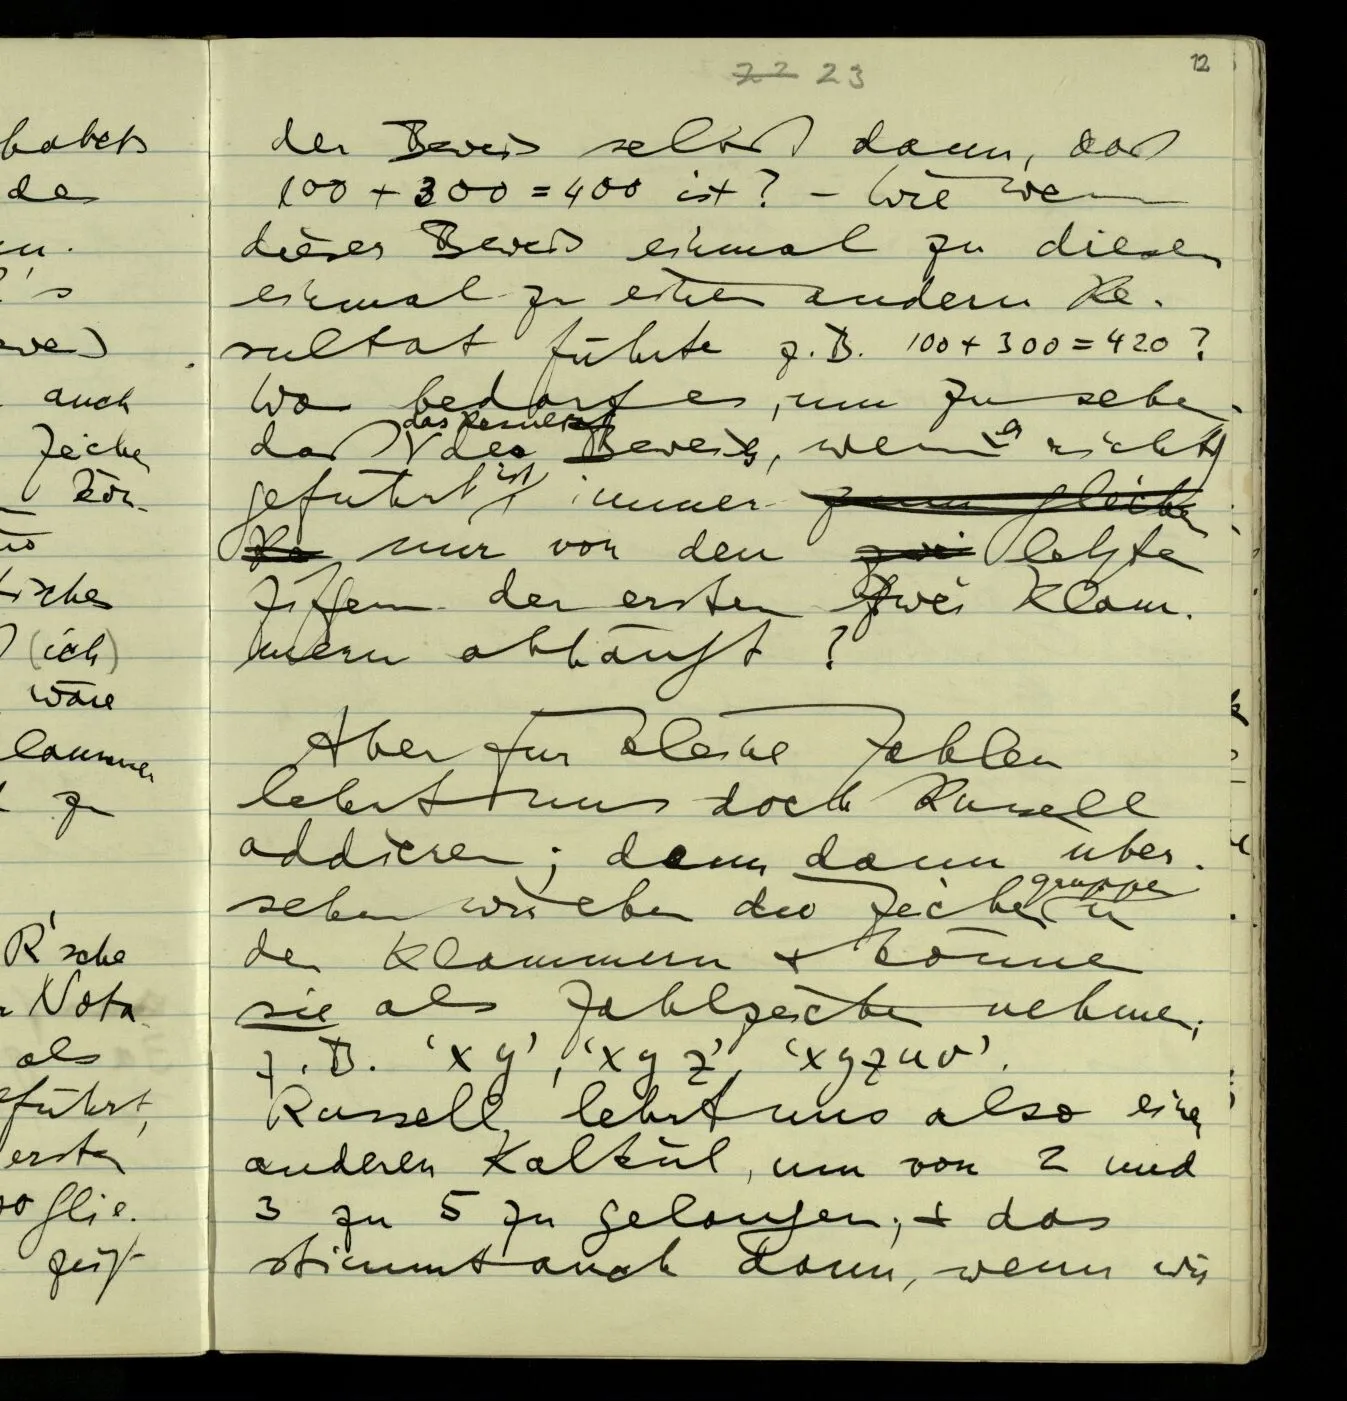 habets
de
en.
's
auch
Zeichen
kön-
isches
(ich)
wäre
klammer
zu
R'sche
Nota
als
geführt,
ersten
100 glie.
zeigt
22 23
12
der Beweis selbst dann, daß
100 + 300 = 400 ist? – Wie wenn
dieser Beweis einmal zu diesem
einmal zu einem andern Re-
sultat führte z.B. 100 + 300 = 420?
Was bedarf es, um zu sehen,
das Resultat
daß des Beweises, wenn er richtig
geführt ist, immer zum gleichen
Re nur von den zwei letzten
Ziffern der ersten zwei Klam-
mern abhängt?
Aber für kleine Zahlen
lehrt uns doch Russell
addieren; denn dann über-
sehen wir eben die Zeichengruppen in
den Klammern + können
sie als Zahlzeichen nehmen;
z.B. 'xy', 'xyz', 'xyzuv'.
Russell lehrt uns also einen
anderen Kalkül, um von 2 und
3 zu 5 zu gelangen; + das
stimmt auch dann, wenn wir